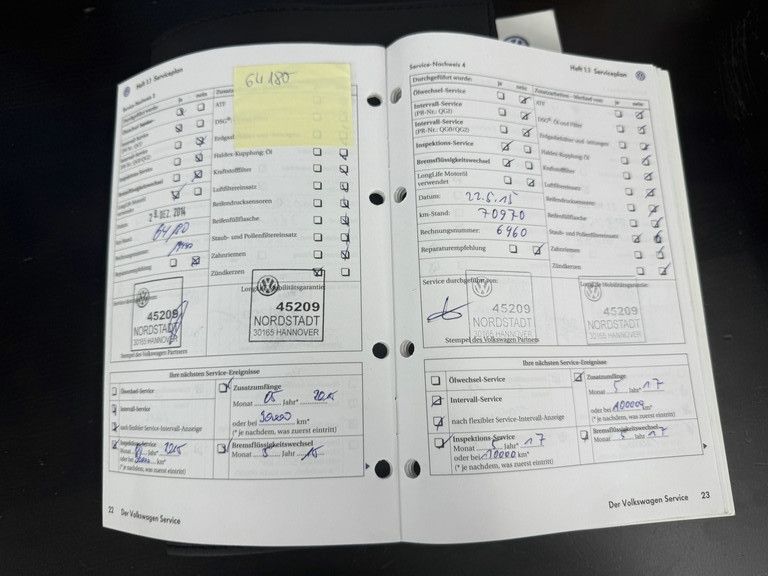 Heft 1.1 Serviceplan
64 180
Service-Nachweis 3
Durchgeführt wurde:
ja
nein
ATF
DSG®
Haldex-Kupplung: Öl
Kraftstofffilter
Luftfiltereinsatz
Reifendrucksensoren
Reifenfüllflasche
Staub- und Pollenfiltereinsatz
Zahnriemen
Zündkerzen
Inspektions-Service
Bremsflüssigkeitswechsel
LongLife Motoröl
verwendet
Datum:
2 8. DEZ. 2014
Rechnungsnummer:
Reparaturempfehlung
LongLife Mobilitätsgarantie:
45209
NORDSTADT
30165 HANNOVER
45209
NORDSTADT
30165 HANNOVER
Stempel des Volkswagen Partners
Ihre nächsten Service-Ereignisse
Ölwechsel-Service
Intervall-Service
nach flexibler Service-Intervall-Anzeige
Inspektions-Service
Monat Jahr* 2015
oder bei km*
(* je nachdem, was zuerst eintritt)
Zusatzumfänge
Monat 05 Jahr* 2015
oder bei km*
(* je nachdem, was zuerst eintritt)
Bremsflüssigkeitswechsel
Monat 5 Jahr 15
22 Der Volkswagen Service
Heft 1.1 Serviceplan
Service-Nachweis 4
Durchgeführt wurde:
ja nein
Ölwechsel-Service
Intervall-Service
(PR-Nr.: QG1)
Intervall-Service
(PR-Nr.: QG0/QG2)
Inspektions-Service
Bremsflüssigkeitswechsel
LongLife Motoröl
verwendet
Datum: 22.5.15
km-Stand: 70970
Rechnungsnummer: 6960
Reparaturempfehlung
ja nein
ATF
DSG®: Öl und Filter
Haldex-Kupplung: Öl
Kraftstofffilter
Luftfiltereinsatz
Reifendrucksensoren
Reifenfüllflasche
Staub- und Pollenfiltereinsatz
Zahnriemen
Zündkerzen
Service durchgeführt von:
LongLife Mobilitätsgarantie:
45209
NORDSTADT
30165 HANNOVER
45209
NORDSTADT
30165 HANNOVER
Stempel des Volkswagen Partners
Ihre nächsten Service-Ereignisse
Ölwechsel-Service
Intervall-Service
nach flexibler Service-Intervall-Anzeige
Inspektions-Service
Monat 5 Jahr* 17
oder bei km*
(* je nachdem, was zuerst eintritt)
Zusatzumfänge
Monat 5 Jahr* 17
oder bei 100000 km*
(* je nachdem, was zuerst eintritt)
Bremsflüssigkeitswechsel
Monat 5 Jahr 17
Der Volkswagen Service 23